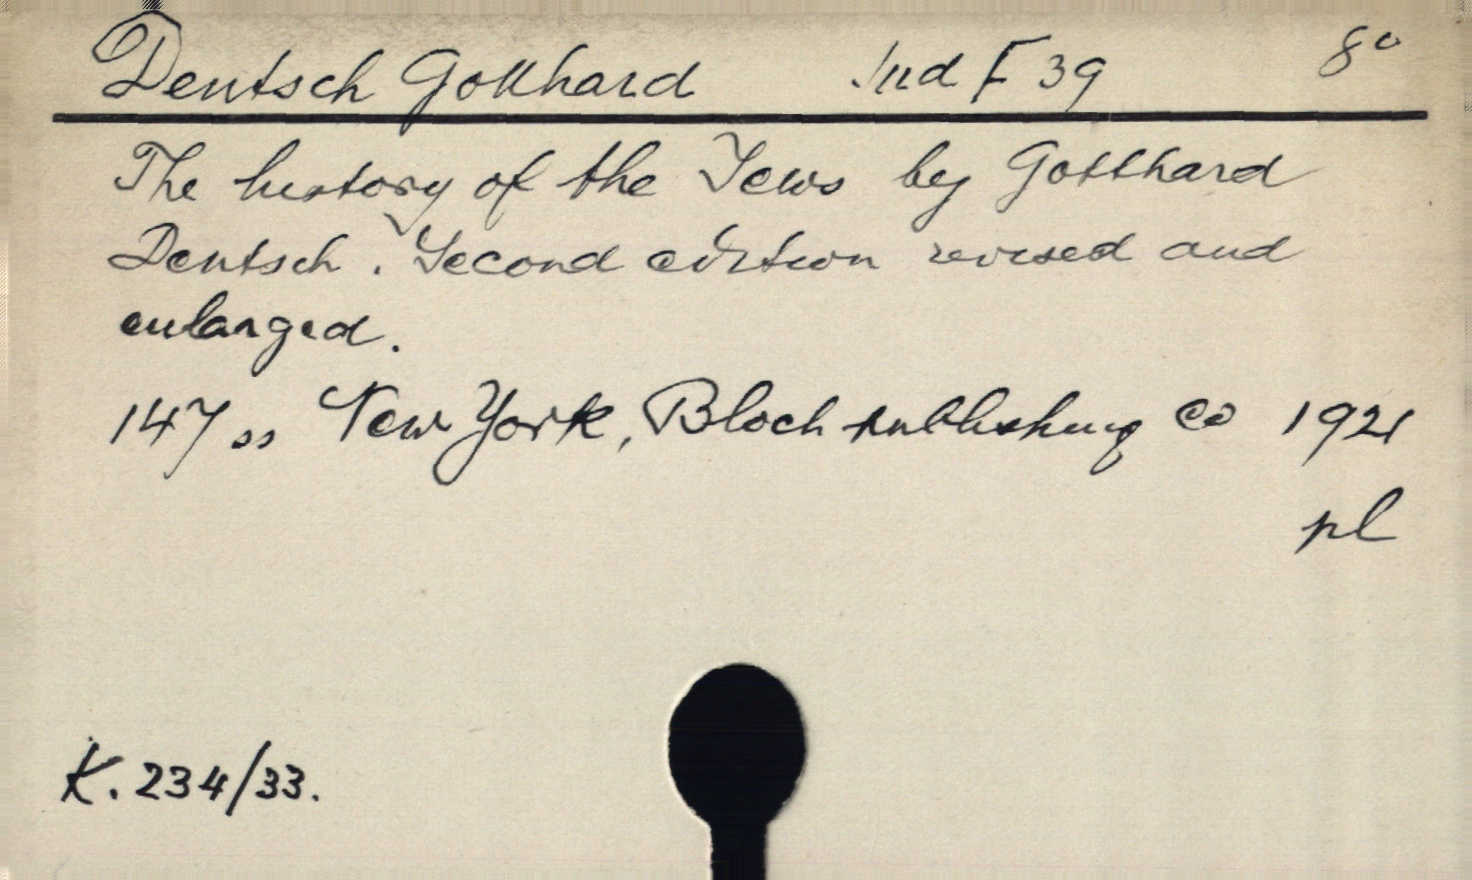 Deutsch Gotthard Jud F 39 8°
The history of the Jews by Gotthard
Deutsch. Second edition revised and
enlarged.
147 ss New York, Bloch publishing Co 1921
pl
K. 234/33.